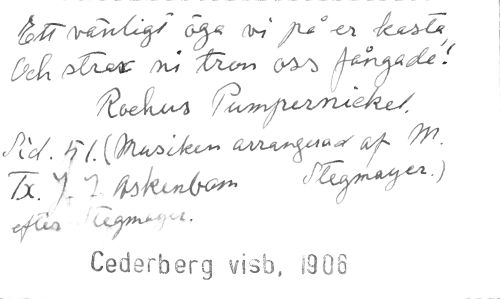 Ett vänligt öga vi på er kasta,
Och strax ni tron oss fångade!
Rochus Pumpernickel.
Sid. 51. (Musiken arrangerad af M.
Tx. J. J. Askenbom Stegmayer.)
efter Stegmayer.
Cederberg visb, 1906